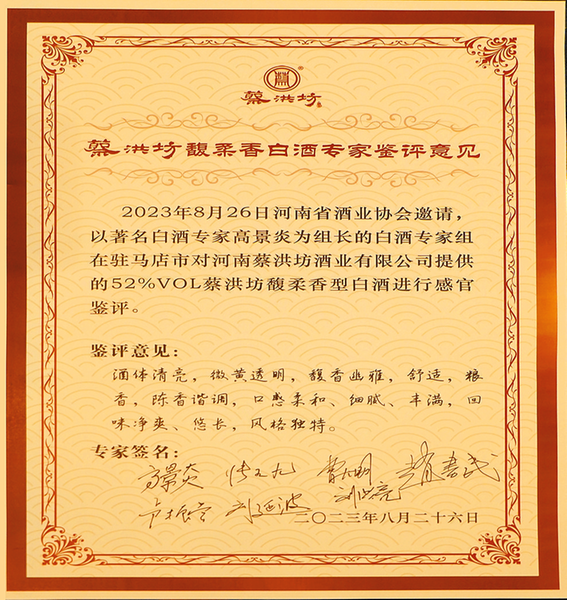 蔡洪坊
蔡洪坊馥柔香白酒专家鉴评意见
2023年8月26日河南省酒业协会邀请，
以著名白酒专家高景炎为组长的白酒专家组
在驻马店市对河南蔡洪坊酒业有限公司提供
的52%VOL蔡洪坊馥柔香型白酒进行感官
鉴评。
鉴评意见：
酒体清亮，微黄透明，馥香幽雅，舒适，粮
香，陈香谐调，口感柔和、细腻、丰满，回
味净爽、悠长，风格独特。
专家签名：
高景炎 赵书民
刘延波
二〇二三年八月二十六日